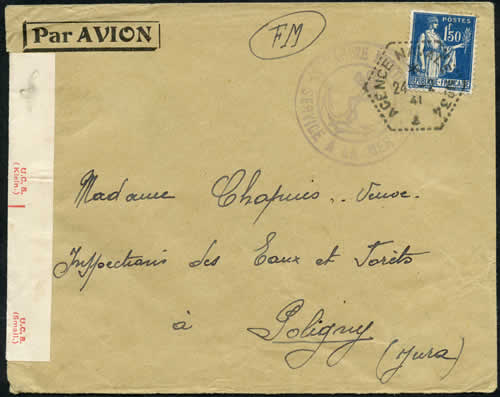 Par AVION
FM
POSTES
1F50
REPUBLIQUE FRANÇAISE
AGENCE
24
41
SERVICE A LA MER
U.C.S.
(Klein.)
Madame Chapuis .. Veuve
Inspections des Eaux et Forêts
à Poligny
(Jura)
U.C.S.
(Small.)